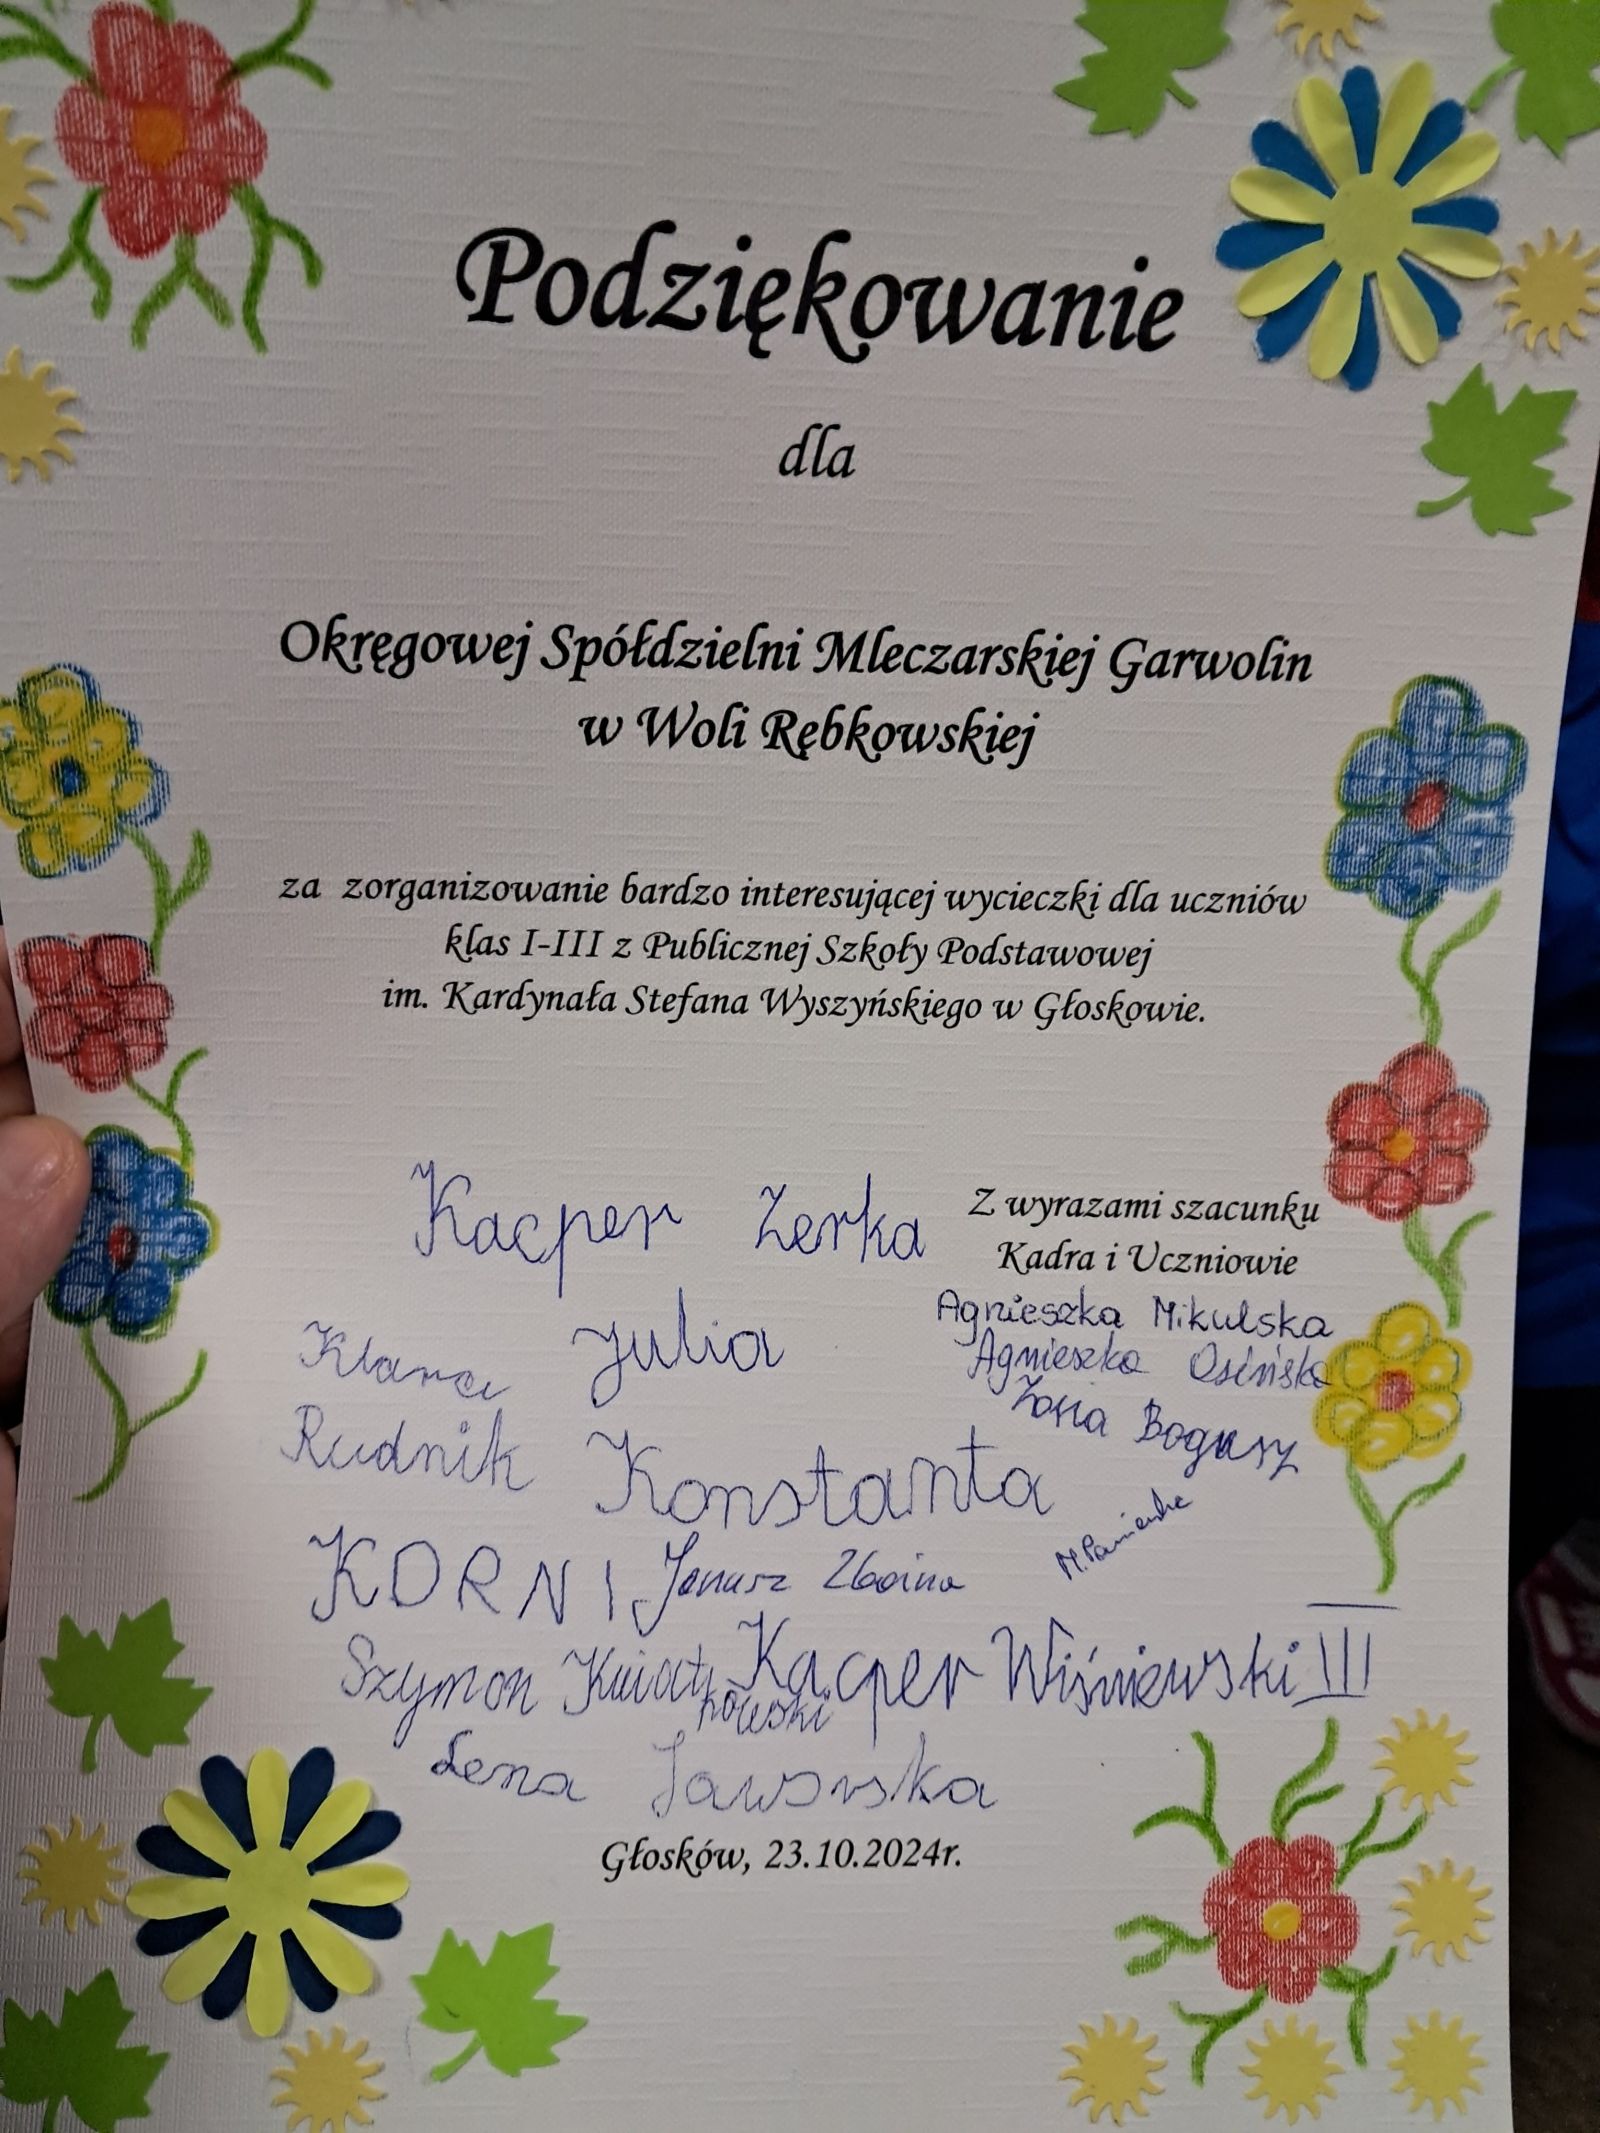 Podziękowanie
dla
Okręgowej Spółdzielni Mleczarskiej Garwolin
w Woli Rębkowskiej
za zorganizowanie bardzo interesującej wycieczki dla uczniów
klas I-III z Publicznej Szkoły Podstawowej
im. Kardynała Stefana Wyszyńskiego w Głoskowie.
Z wyrazami szacunku
Kadra i Uczniowie
Kacper Zerka
Agnieszka Mikulska
Klara Julia
Agnieszka Osińska
Zosia Bogusz
Rudnik Konstanta
KORNI Janusz
Szymon Kwiatkowski Kacper Wiśniewski III
Lena Jaworska
Głosków, 23.10.2024r.